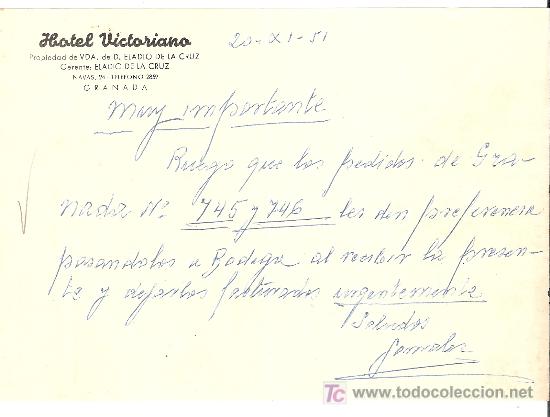 Hotel Victoriano
Propiedad de VDA. de D. ELADIO DE LA CRUZ
Gerente: ELADIO DE LA CRUZ
NAVAS, 24 - TELEFONO 2859
GRANADA
20-XI-51
Muy importante
Ruego que los pedidos de Gra-
nada Nº 745 y 746 les den preferencia
pasandolos a Bodega al recibir la presen-
te y dejarlos facturados urgentemente
Saludos
TC
www.todocoleccion.net